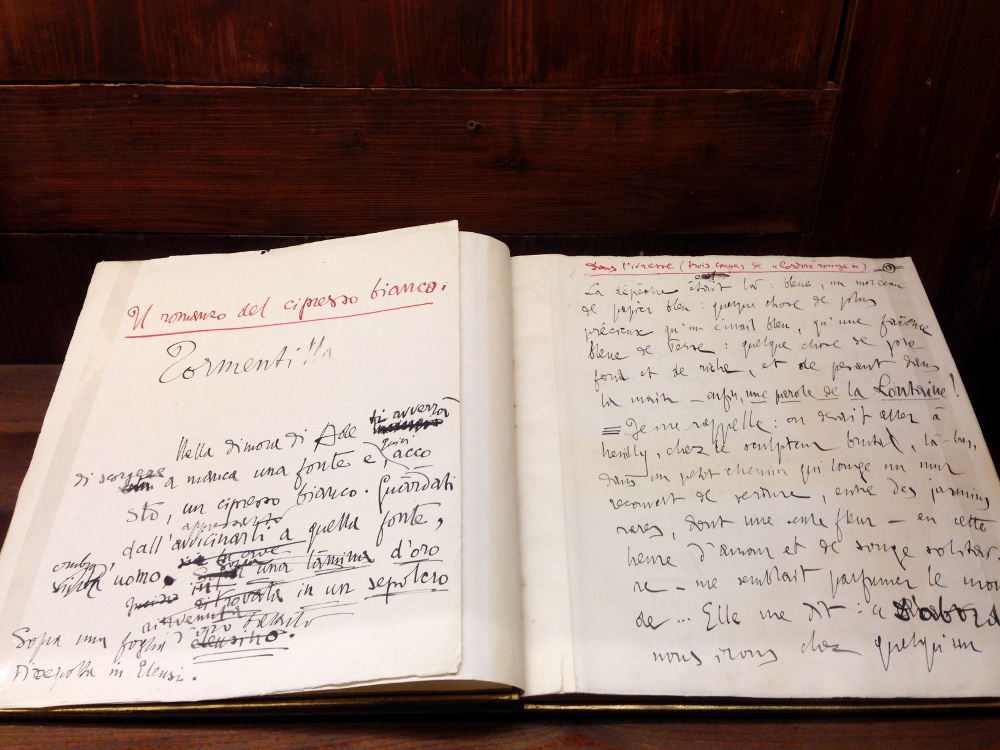 Il romanzo del cipresso bianco.
Tormenti!!!
Nella dimora di Ade ti avverrà
di scorgere a manca una fonte e, quivi acco
stò, un cipresso bianco. Guàrdati
dall'avvicinarti a quella fonte,
uomo.
una làmina d'oro
ritrovata in un sepolcro
rinvenuta
Sopra una foglia
in Eleusi.
Dans l'ivresse (trois coupes de "Cordon rouge")
La dépêche était là : bleue, un morceau
de papier bleu : quelque chose de plus
précieux qu'un émail bleu, qu'une faïence
bleue de Perse : quelque chose de pro
fond et de riche, et de pesant dans
la main — enfin, une parole de la Lontaine !
— Je me rappelle : on devait aller à
Neuilly, chez le sculpteur brutal, là-bas,
dans un petit chemin qui longe un mur
recouvert de verdure, entre des jasmins
rares, dont une seule fleur — en cette
heure d'amour et de songe solitai-
re — me semblait parfumer le mon
de... Elle me dit : « D'abord
nous irons chez quelqu'un